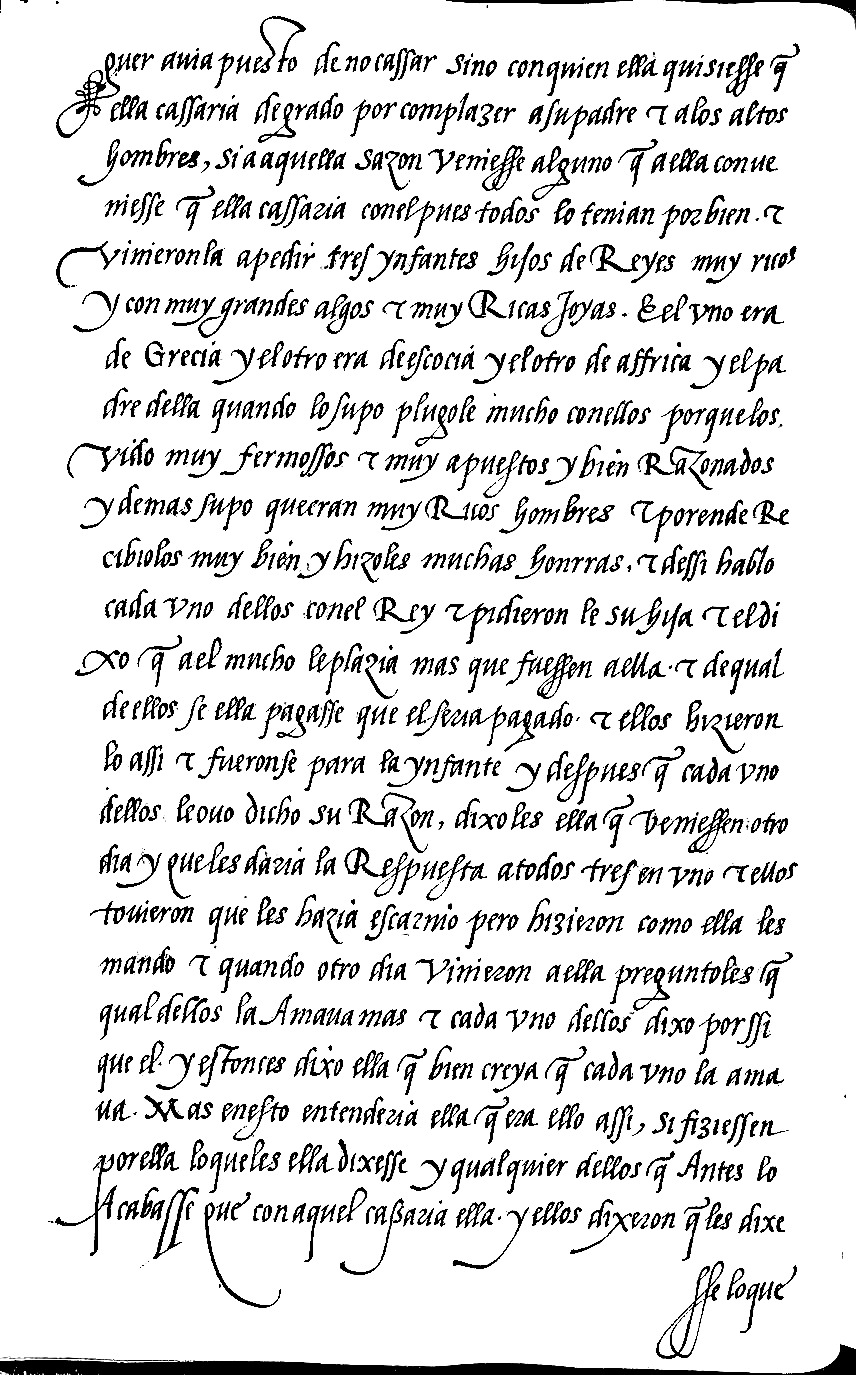 quer auia puesto de no cassar sino con quien ella quisiesse q̃
ella cassaria de grado por complazer a su padre τ a los altos
hombres, si a aquella sazon veniesse alguno q̃ a ella conue
niesse q̃ ella cassaria con el pues todos lo tenian por bien. τ
vinieronla a pedir tres ynfantes hijos de Reyes muy ricos
y con muy grandes algos τ muy Ricas Joyas. E el vno era
de Grecia y el otro era de escocia y el otro de affrica y el pa
dre della quando lo supo plugole mucho con ellos porque los
vido muy fermossos τ muy apuestos y bien Razonados
y demas supo que eran muy Ricos hombres τ por ende Re
cibiolos muy bien y hizoles muchas honrras. τ dessi hablo
cada vno dellos con el Rey τ pidieron le su hija τ el di
xo q̃ a el mucho le plazia mas que fuessen a ella. τ de qual
de ellos se ella pagasse que el seria pagado. τ ellos hizieron
lo assi τ fueronse para la ynfante y despues q̃ cada vno
dellos le ouo dicho su Razon, dixoles ella q̃ veniessen otro
dia y que les daria la Respuesta a todos tres en vno τ ellos
touieron que les hazia escarnio pero hizieron como ella les
mando τ quando otro dia vinieron a ella preguntoles q̃
qual dellos la Amaua mas τ cada vno dellos dixo por ssi
que el. y estonces dixo ella q̃ bien creya q̃ cada vno la ama
ua. Mas en esto entenderia ella q̃ era ello assi, si fiziessen
por ella lo que les ella dixesse y qualquier dellos q̃ Antes lo
Acabasse que con aquel caßaria ella. y ellos dixeron q̃ les dixe
sse lo que